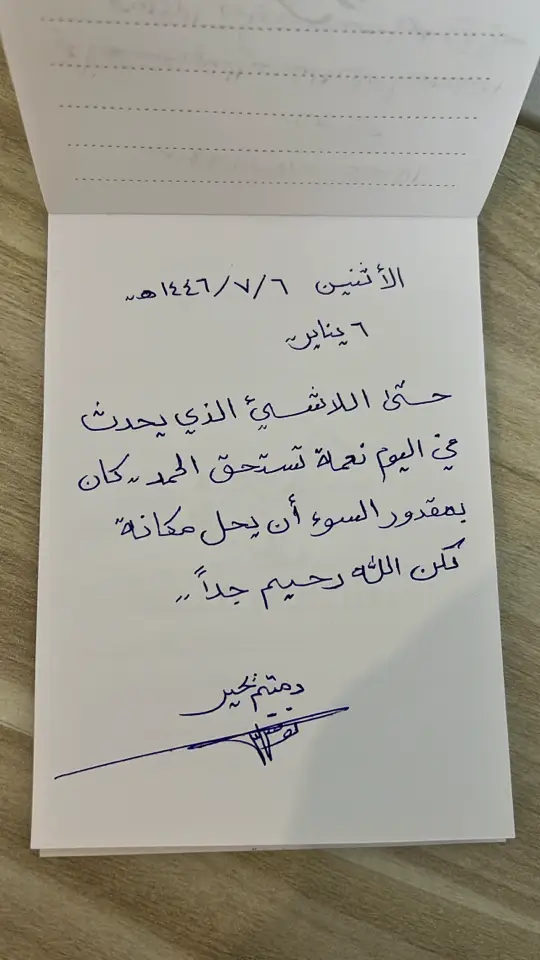 الأثنين ٦/٧/١٤٤٦هـ..
٦ يناير..
حتى اللاشيئ الذي يحدث
في اليوم نعمة تستحق الحمد.. كان
بمقدور السوء أن يحل مكانة
لكن الله رحيم جداً..
دمتم بخير